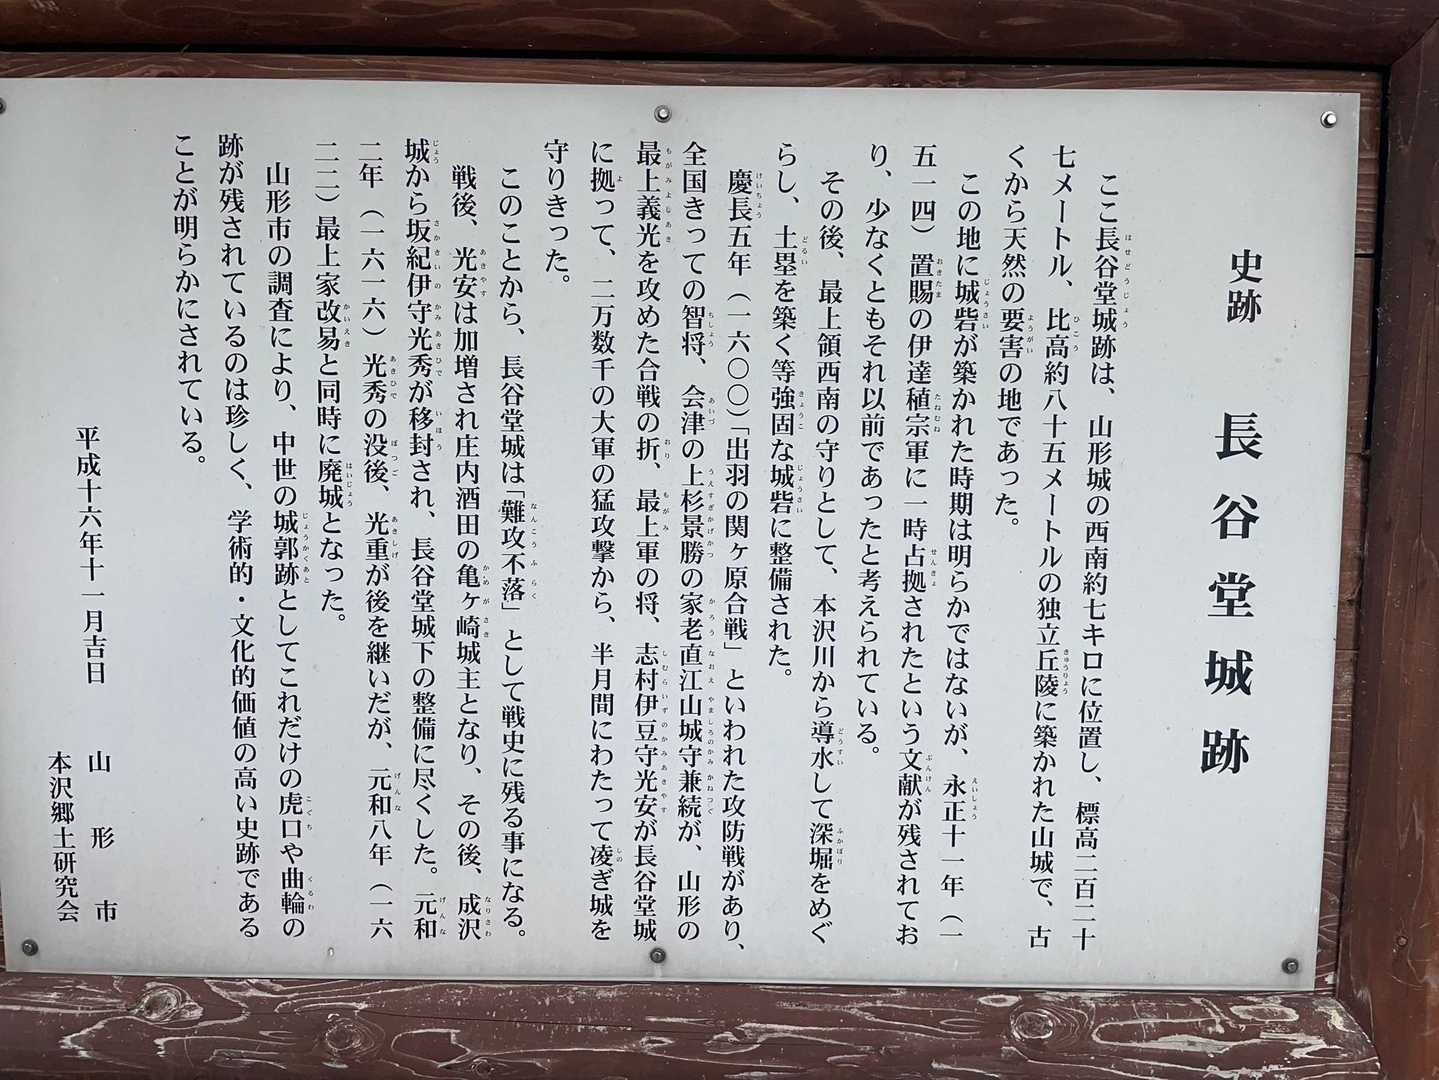 史跡　長谷堂城跡
ここ長谷堂城跡は、山形城の西南約七キロに位置し、標高二百二十
七メートル、比高約八十五メートルの独立丘陵に築かれた山城で、古
くから天然の要害の地であった。
この地に城砦が築かれた時期は明らかではないが、永正十一年（一
五一四）置賜の伊達稙宗軍に一時占拠されたという文献が残されてお
り、少なくともそれ以前であったと考えられている。
その後、最上領西南の守りとして、本沢川から導水して深堀をめぐ
らし、土塁を築く等強固な城砦に整備された。
慶長五年（一六〇〇）「出羽の関ヶ原合戦」といわれた攻防戦があり、
全国きっての智将、会津の上杉景勝の家老直江山城守兼続が、山形の
最上義光を攻めた合戦の折、最上軍の将、志村伊豆守光安が長谷堂城
に拠って、二万数千の大軍の猛攻撃から、半月間にわたって凌ぎ城を
守りきった。
このことから、長谷堂城は「難攻不落」として戦史に残る事になる。
戦後、光安は加増され庄内酒田の亀ヶ崎城主となり、その後、成沢
城から坂紀伊守光秀が移封され、長谷堂城下の整備に尽くした。元和
二年（一六一六）光秀の没後、光重が後を継いだが、元和八年（一六
二二）最上家改易と同時に廃城となった。
山形市の調査により、中世の城郭跡としてこれだけの虎口や曲輪の
跡が残されているのは珍しく、学術的・文化的価値の高い史跡である
ことが明らかにされている。
平成十六年十一月吉日　山形市
本沢郷土研究会